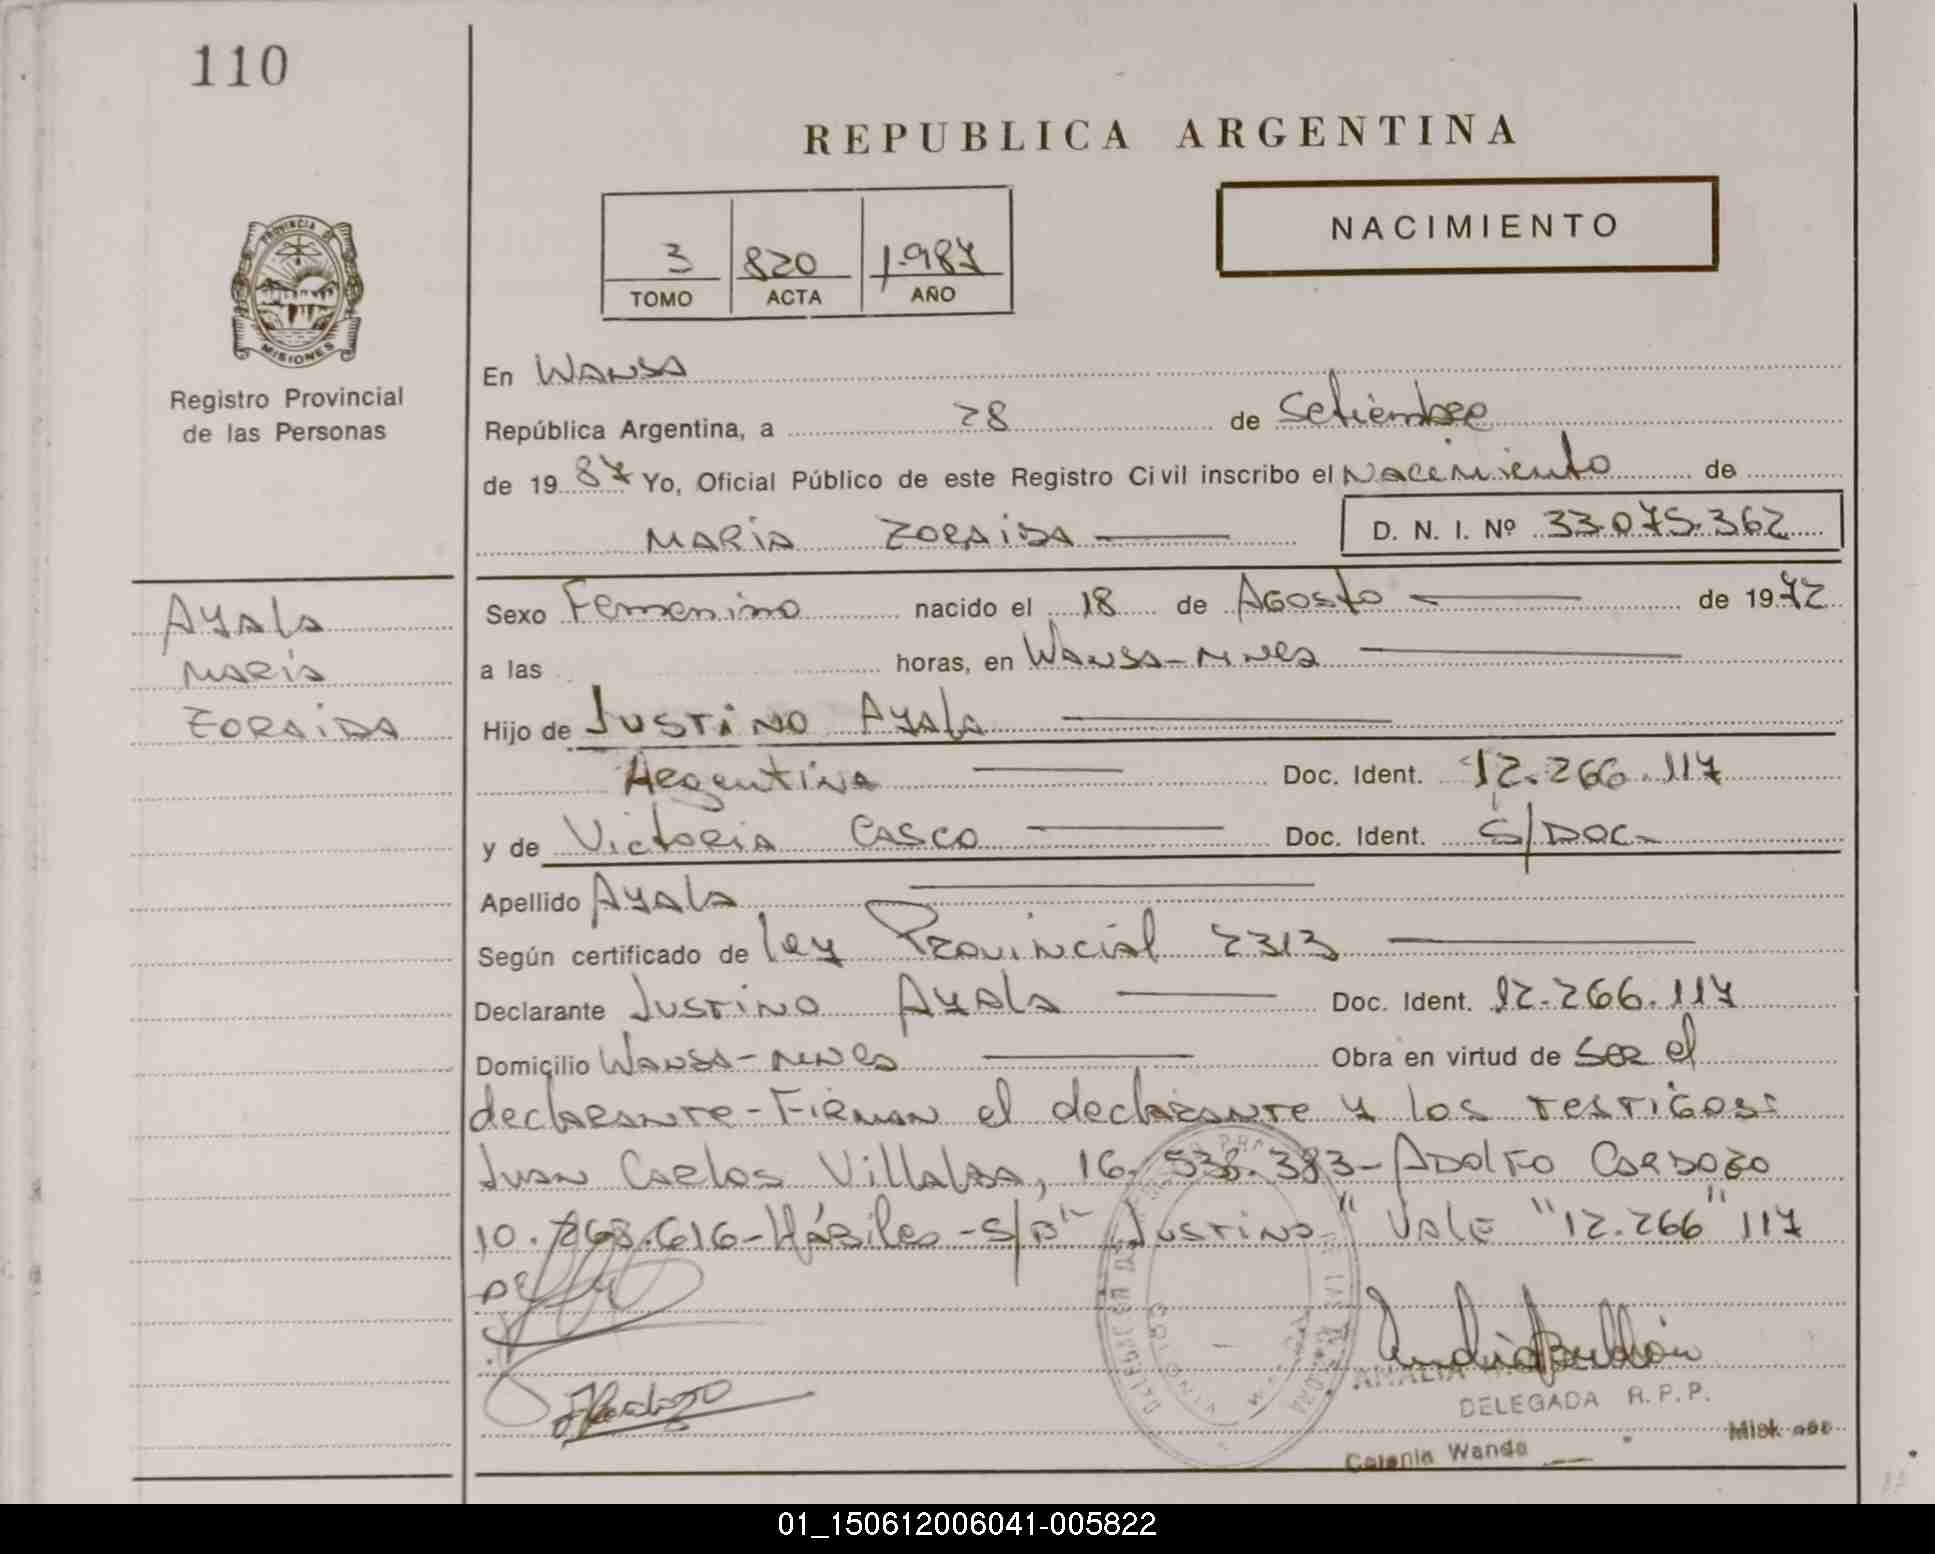 110
REPUBLICA ARGENTINA
PROVINCIA DE
MISIONES
Registro Provincial
de las Personas
3 820 1.987
TOMO ACTA AÑO
NACIMIENTO
En Wanda
República Argentina, a 28 de Setiembre
de 1987 Yo, Oficial Público de este Registro Civil inscribo el Nacimiento de
María Zoraida D. N. I. Nº 33.075.362
Ayala
María
Zoraida
Sexo Femenino nacido el 18 de Agosto de 1972
a las horas, en Wanda-Mnes
Hijo de Justino Ayala
Argentina Doc. Ident. 12.266.117
y de Victoria Casco Doc. Ident. S/Doc-
Apellido Ayala
Según certificado de ley Provincial 2313
Declarante Justino Ayala Doc. Ident. 12.266.117
Domicilio Wanda-Mnes Obra en virtud de ser el
declarante-Firman el declarante y los testigos:
Juan Carlos Villalba, 16.538.383-Adolfo Cardozo
10. 616-Hábiles-S/B "Justino" Vale "12.266" 117
AMALIA
DELEGADA R.P.P.
Colonia Wanda